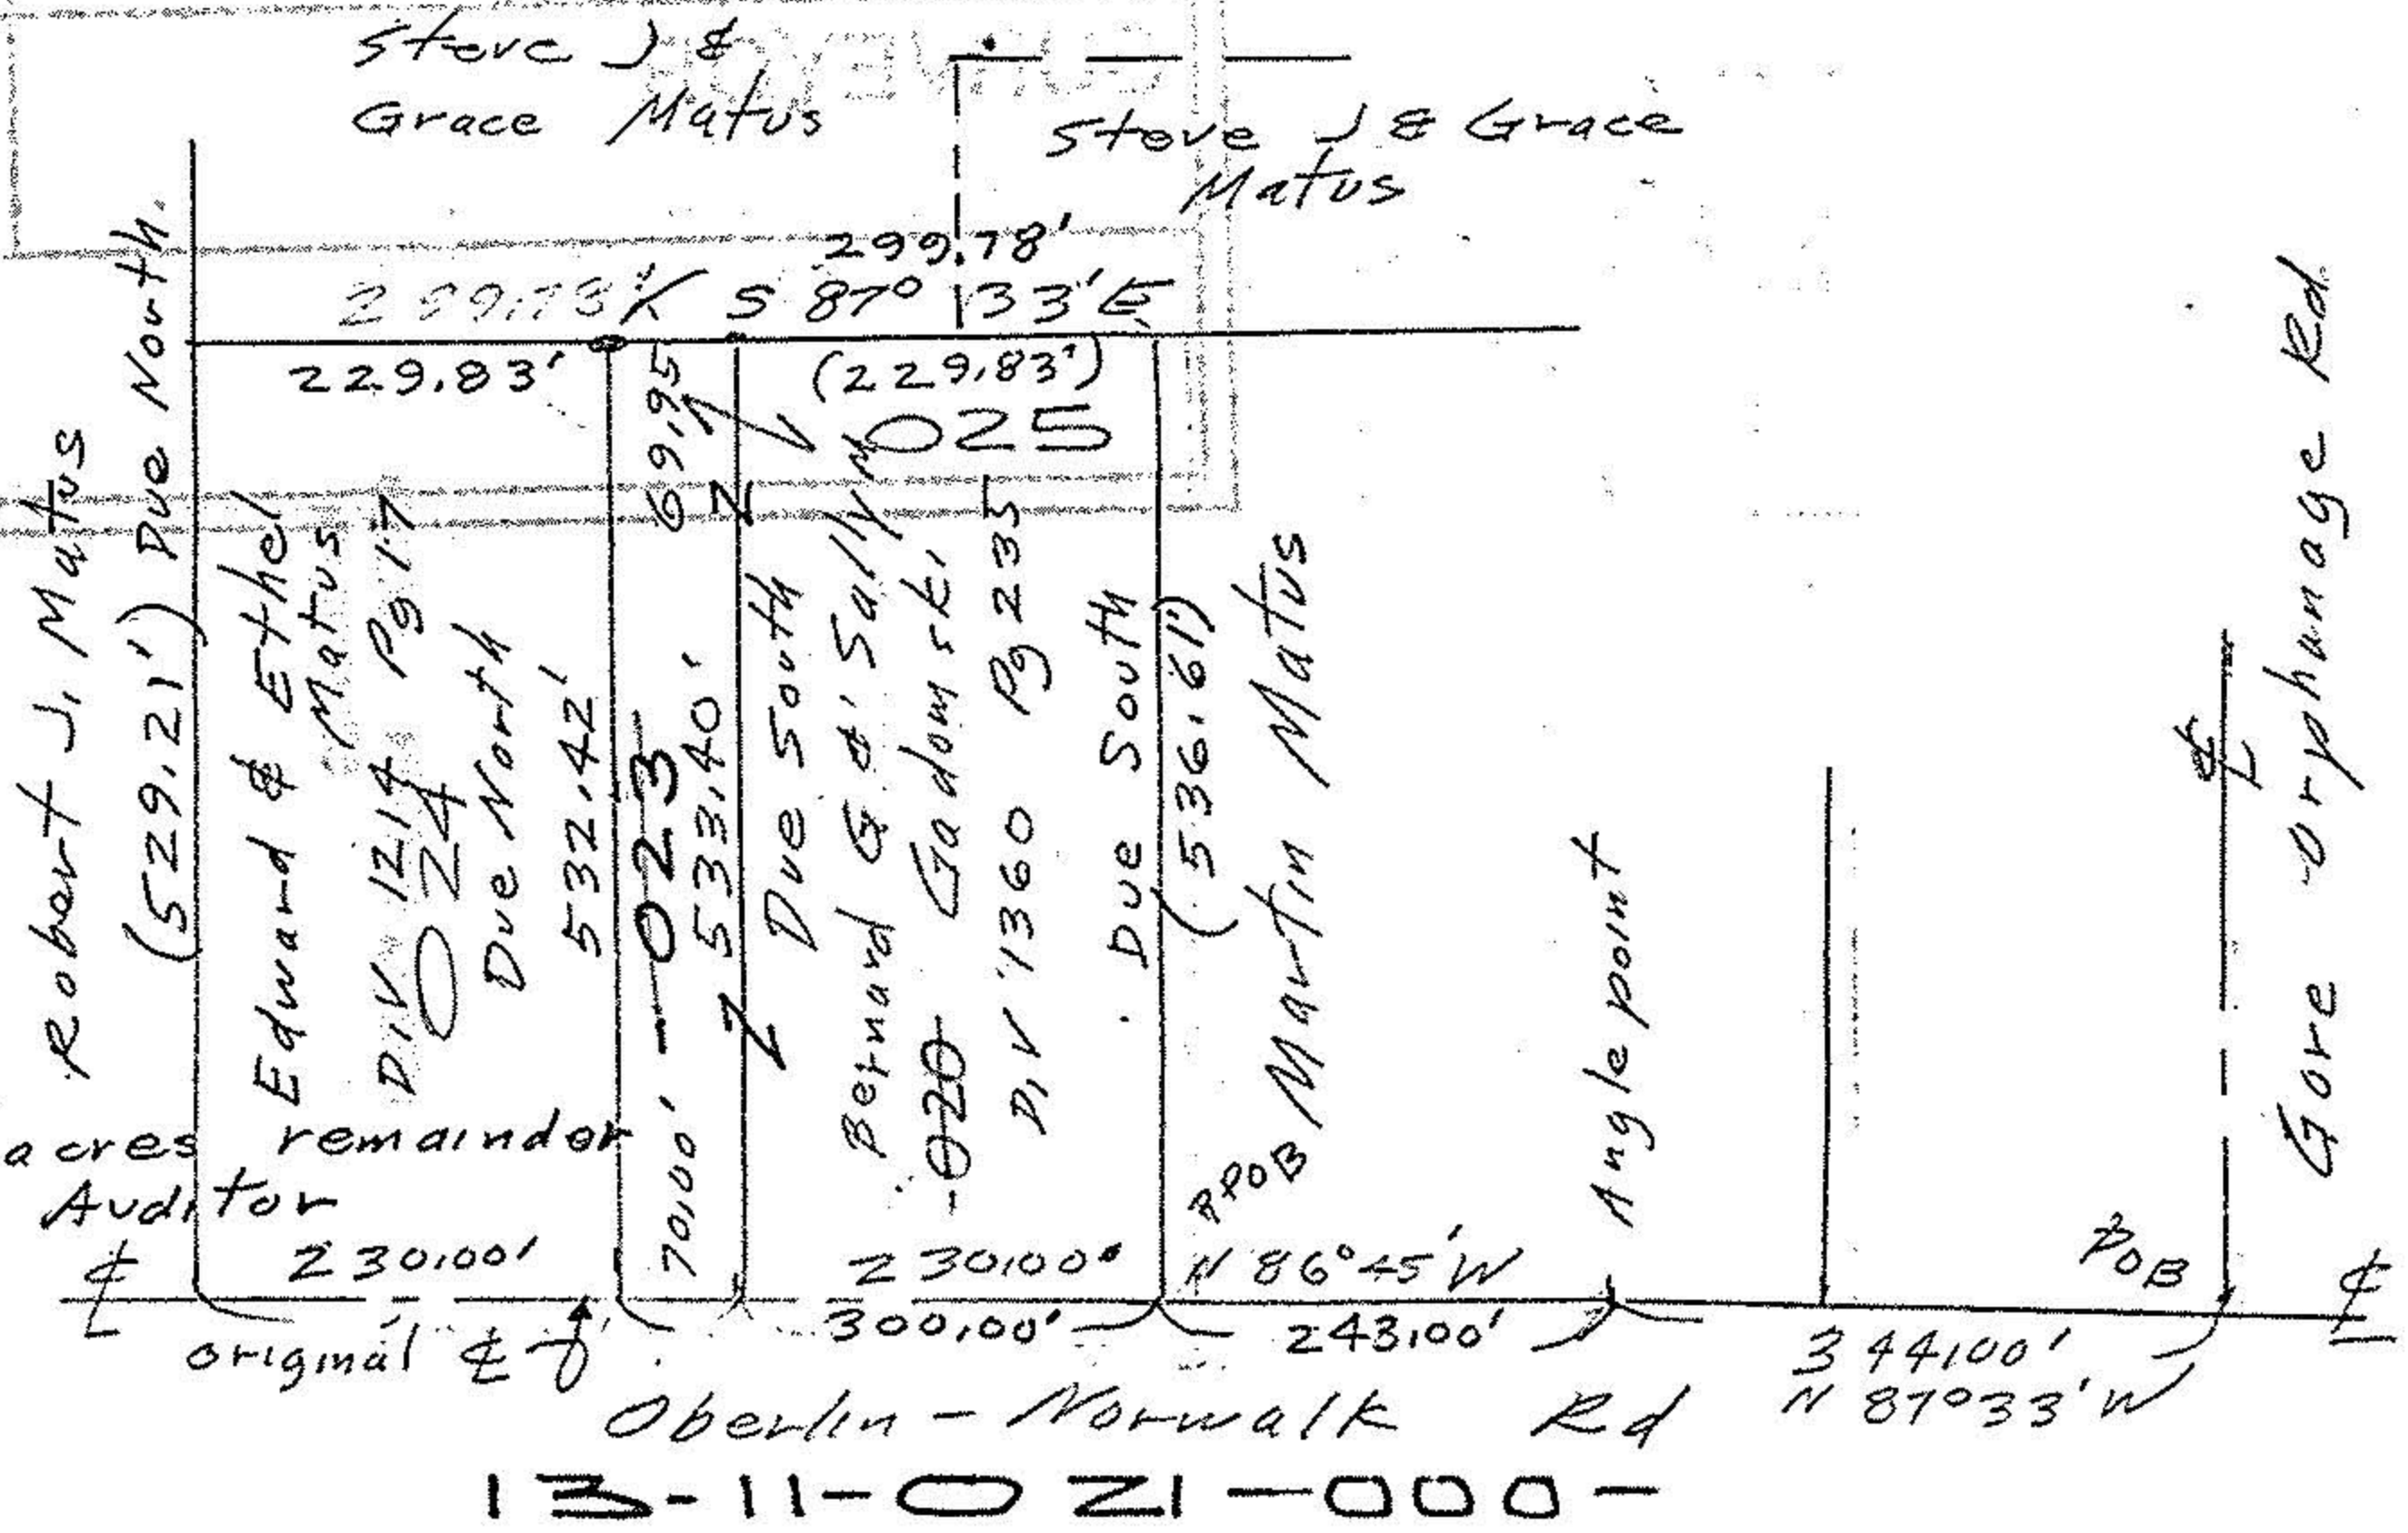 Steve J &
Grace Matus
Steve J & Grace
Matus
299.78'
S 87° 33' E
229.83'
69.95
(229.83')
025
Due North.
Robert J. Matus
(529.21')
Edward & Ethel
Matus
D.V 1214 Pg 17
024
Due North
532.42'
-023
533.40'
Due South
Bernard G. & Sally M
Gadomski
-020
D.V 1360 Pg 235
Due South
(536.61')
Martin Matus
Angle point
Gore Orphanage Rd.
℄
acres remainder
Auditor
70.00'
PPOB
POB
℄
230.00'
230.00'
N 86° 45' W
℄
original ℄
300.00'
243.00'
344.00'
N 87° 33' W
Oberlin - Norwalk Rd
13-11-021-000-